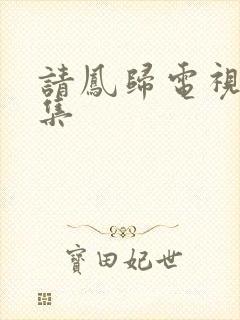 請鳳歸電視
集
寶田妃世